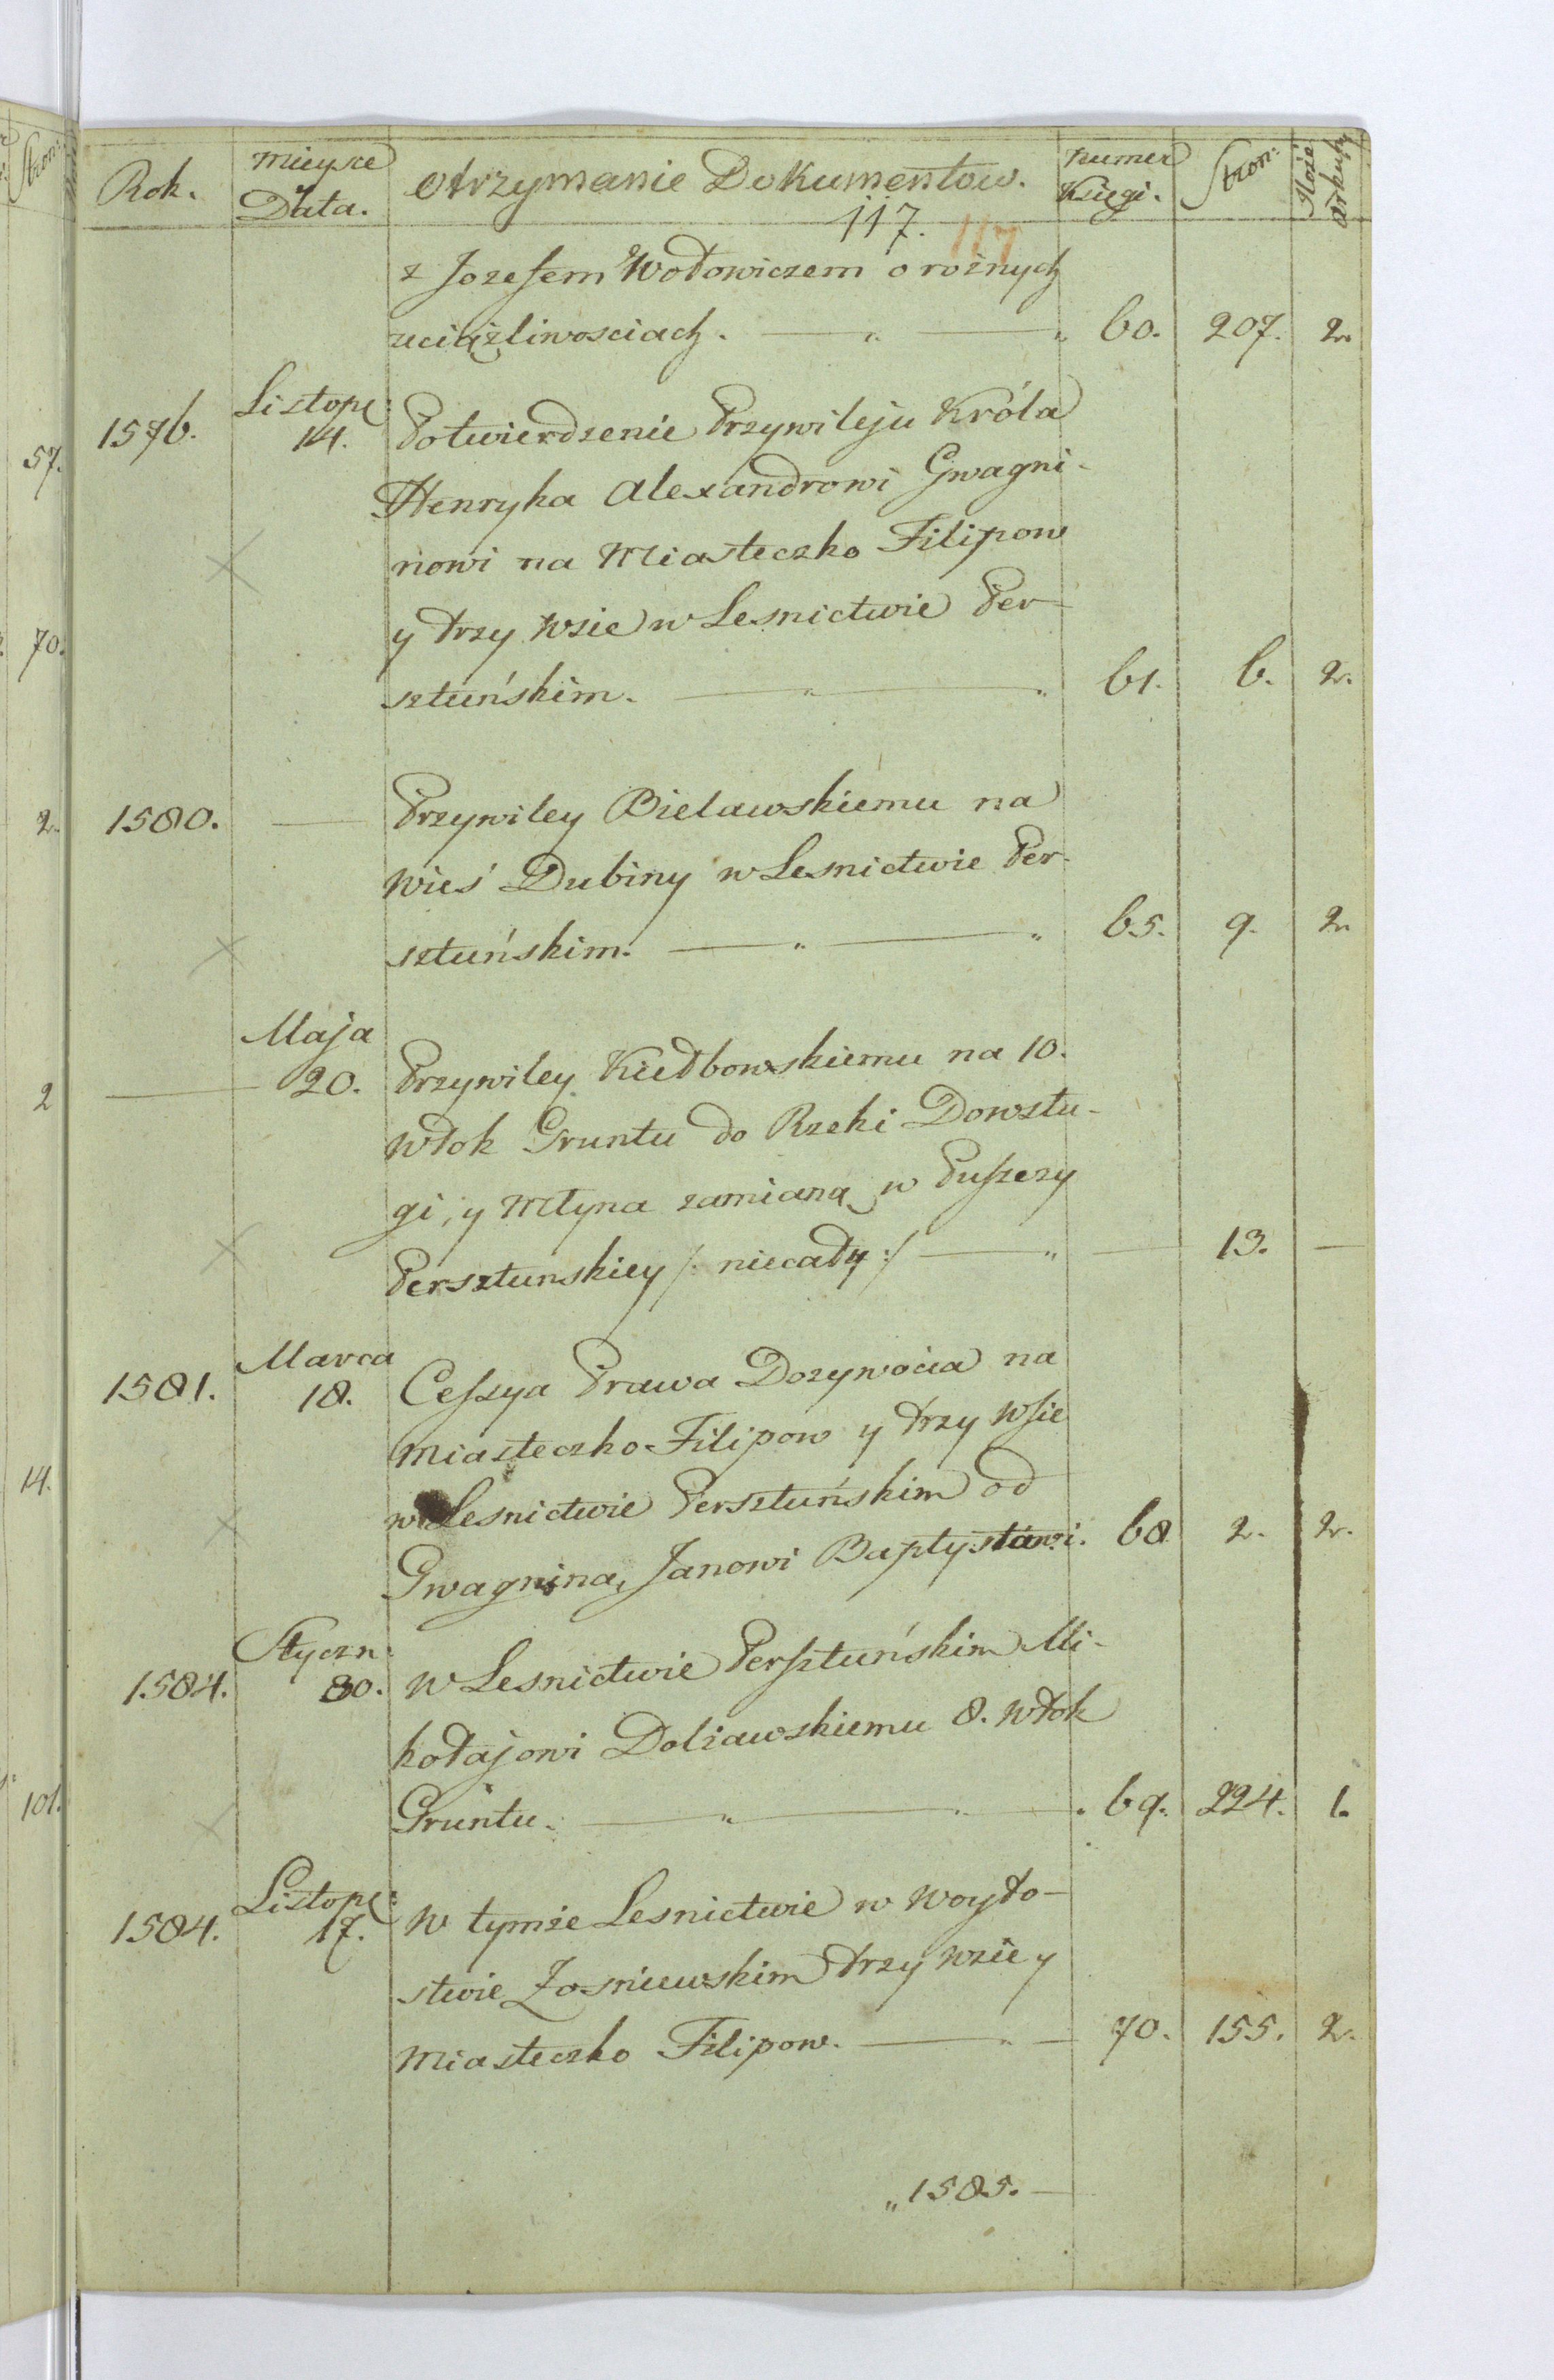 Rok. Mieysce y Data. Otrzymanie Dokumentow. Numer Księgi. Stron: Ilość Arkuszy
117. 117
z Jozefem Wołowiczem o rożnych
uciążliwosciach. 60. 207. 2.
Listop:
1576. 14. Potwierdzenie Przywileju Króla
Henryka Alexandrowi Gwagni-
nowi na Miasteczko Filipow
y trzy wsie w Lesnictwie Per-
sztuńskim. 61. 6. 2.
1580. — Przywiley Bielawskiemu na
Wieś Dubiny w Lesnictwie Per-
sztuńskim. 65. 9. 2.
Maja
— 20. Przywiley Kiełbowskiemu na 10.
Włok Gruntu do Rzeki Dowstu-
gi, y Młyna zamianą w Puszczy
Persztunskiey /: niecały :/ — 13. —
Marca
1581. 18. Cessya Prawa Dozywocia na
Miasteczko Filipow y trzy wsie
w Lesnictwie Persztuńskim od
Gwagnina, Janowi Baptystowi. 68 2. 2.
Styczn:
1584. 30. W Lesnictwie Persztuńskim Mi-
kołajowi Dolzawskiemu 8. Włok
Gruntu. 69. 224. 1.
Listop:
1584. 17. W tymże Lesnictwie w Woyto-
stwie Zosniewskim trzy wsie y
Miasteczko Filipow. 70. 155. 2.
„1585.—
57.
70.
2.
2
14.
101.